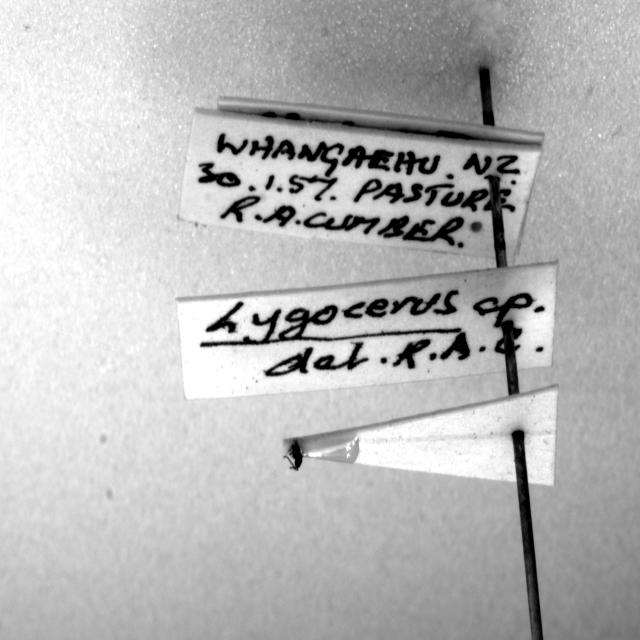 WHANGAEHU. NZ.
30.1.57. PASTURE.
R.A.CUMBER.
Lygocerus sp.
det. R.A.C.